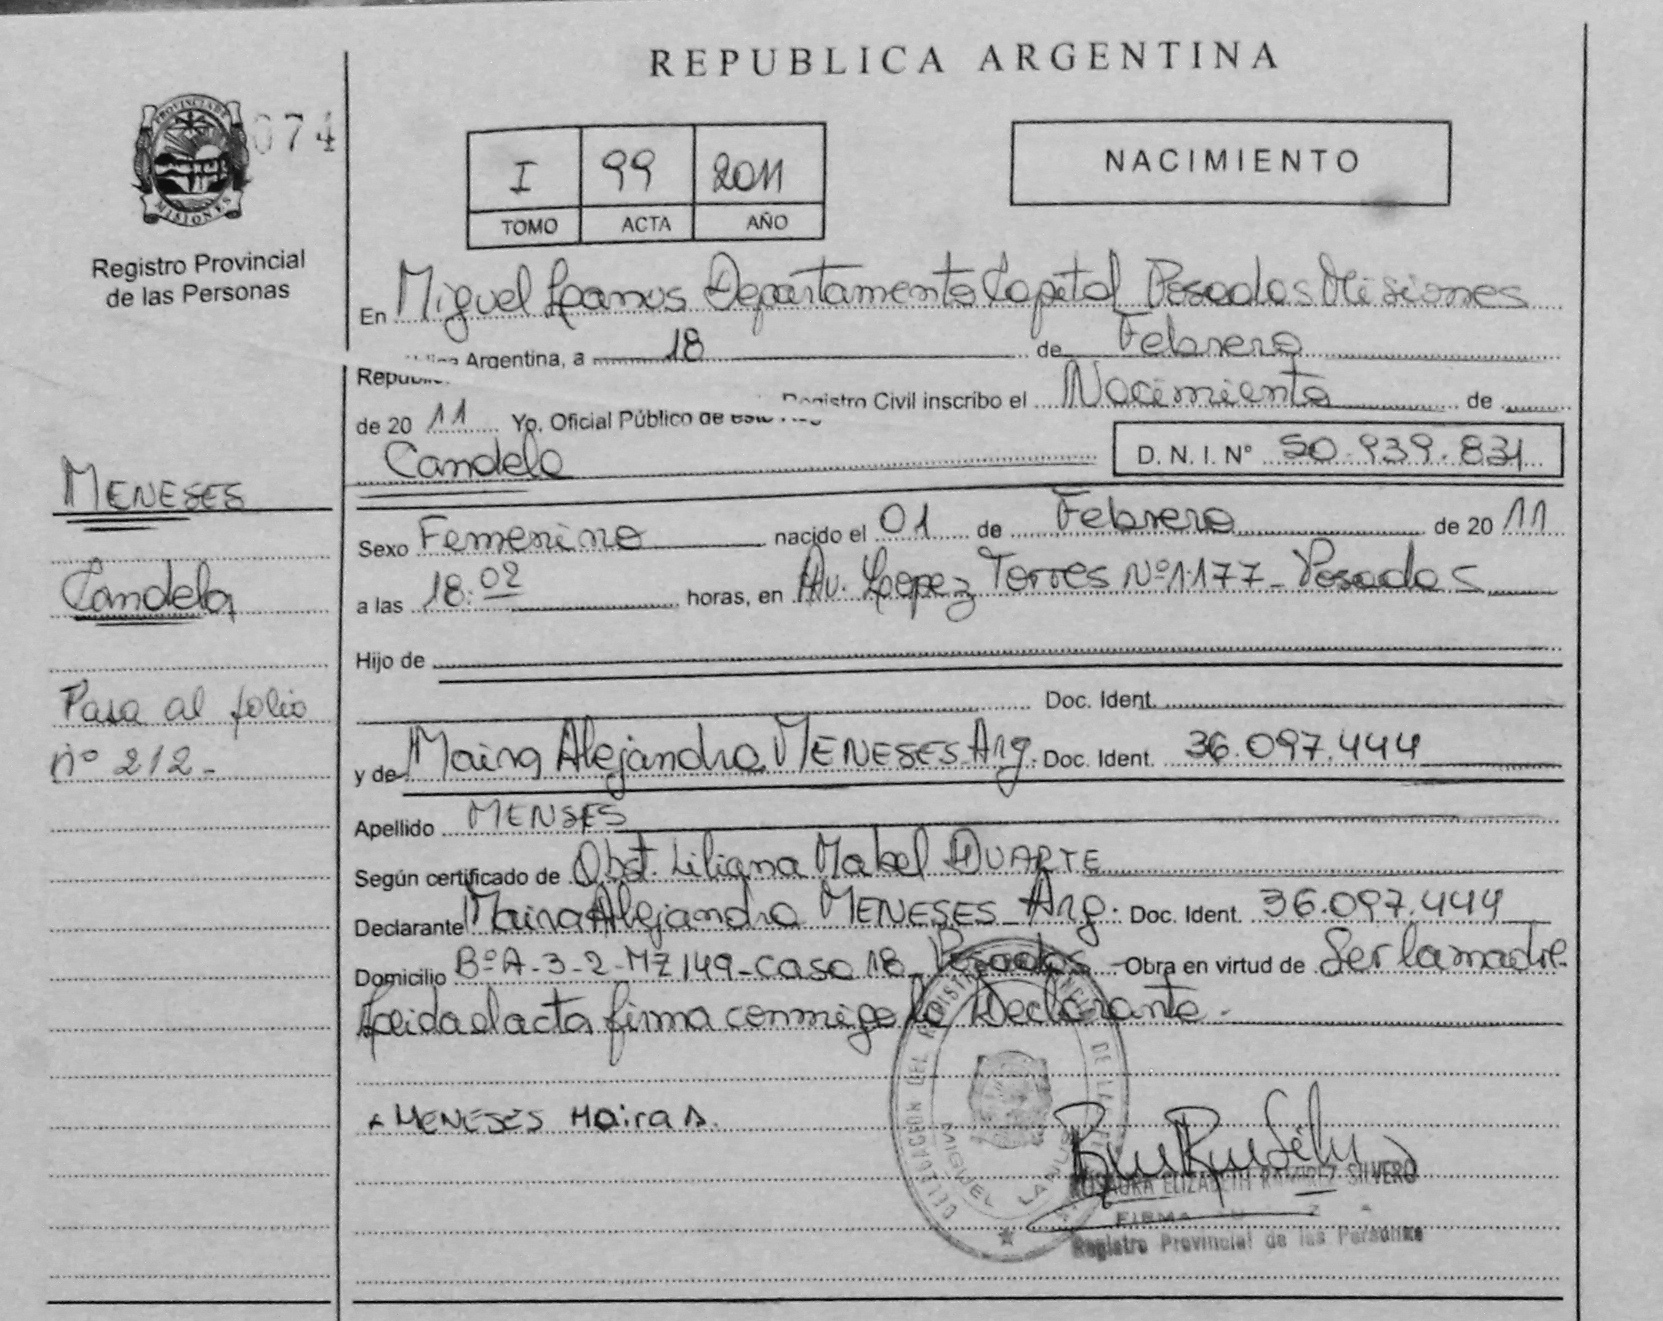 REPUBLICA ARGENTINA
PROVINCIA DE
MISIONES
074
Registro Provincial
de las Personas
I 99 2011
TOMO ACTA AÑO
NACIMIENTO
En Miguel Lanus Departamento Capital Posadas Misiones
Argentina, a 18 de Febrero
de 20 11 Yo, Oficial Público de este Registro Civil inscribo el Nacimiento de
Candela D. N. I. Nº 50.939.831
MENESES
Candela
Pasa al folio
nº 212-
Sexo Femenino nacido el 01 de Febrero de 20 11
a las 18:02 horas, en Av. Lopez Torres Nº 1177- Posadas
Hijo de
Doc. Ident.
y de Maira Alejandra MENESES Arg. Doc. Ident. 36.097.444
Apellido MENSES
Según certificado de Obst. Liliana Mabel DUARTE
Declarante Maira Alejandra MENESES Arg. Doc. Ident. 36.097.444
Domicilio BºA-3-2-MZ 149-casa 18 Posadas - Obra en virtud de Ser la madre.
Leida el acta firma conmigo la Declarante.-
MENESES Maira A.
DELEGACION DEL REGISTRO PROVINCIAL DE LAS PERSONAS
MIGUEL LANUS
ROSAURA ELIZABETH RAMIREZ SILVERO
FIRMA
Registro Provincial de las Personas